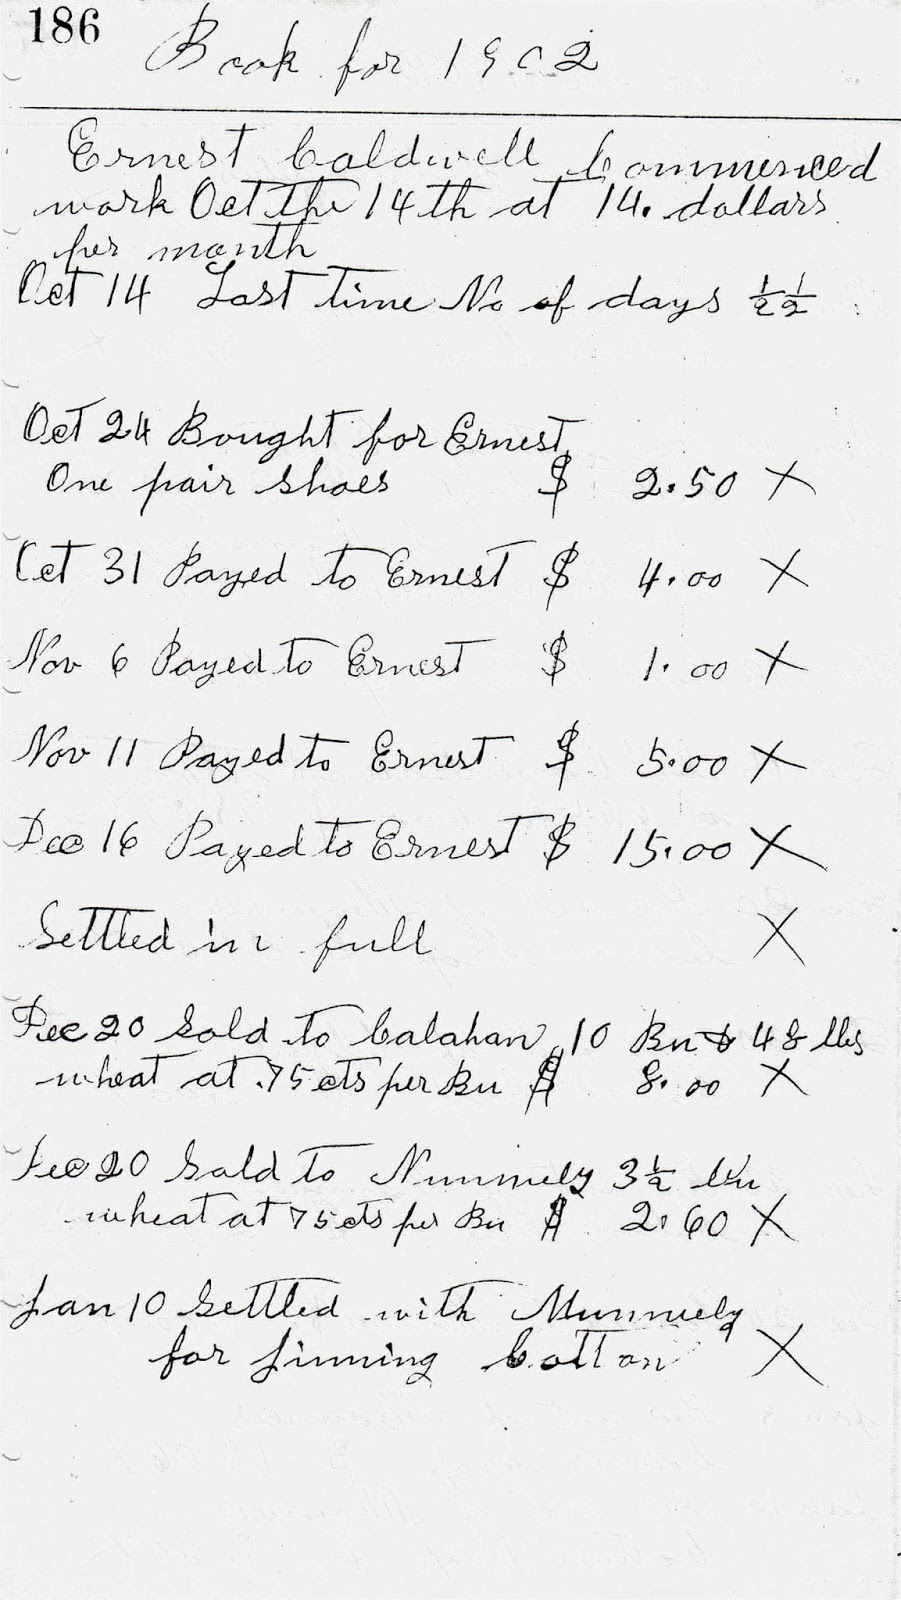 186
Book for 1902
Ernest Caldwell Commenced
work Oct the 14th at 14. dollars
per month
Oct 14 Lost time No of days ½ ½
Oct 24 Bought for Ernest
One pair shoes $ 2.50 X
Oct 31 Payed to Ernest $ 4.00 X
Nov 6 Payed to Ernest $ 1.00 X
Nov 11 Payed to Ernest $ 5.00 X
Dec 16 Payed to Ernest $ 15.00 X
Settled in full X
Dec 20 Sold to Calahan 10 Bu & 48 lbs
wheat at .75 cts per Bu $ 8.00 X
Dec 20 Sold to Nunnely 3½ bu
wheat at 75 cts per Bu $ 2.60 X
Jan 10 Settled with Munnely
for Jinning Cotton X